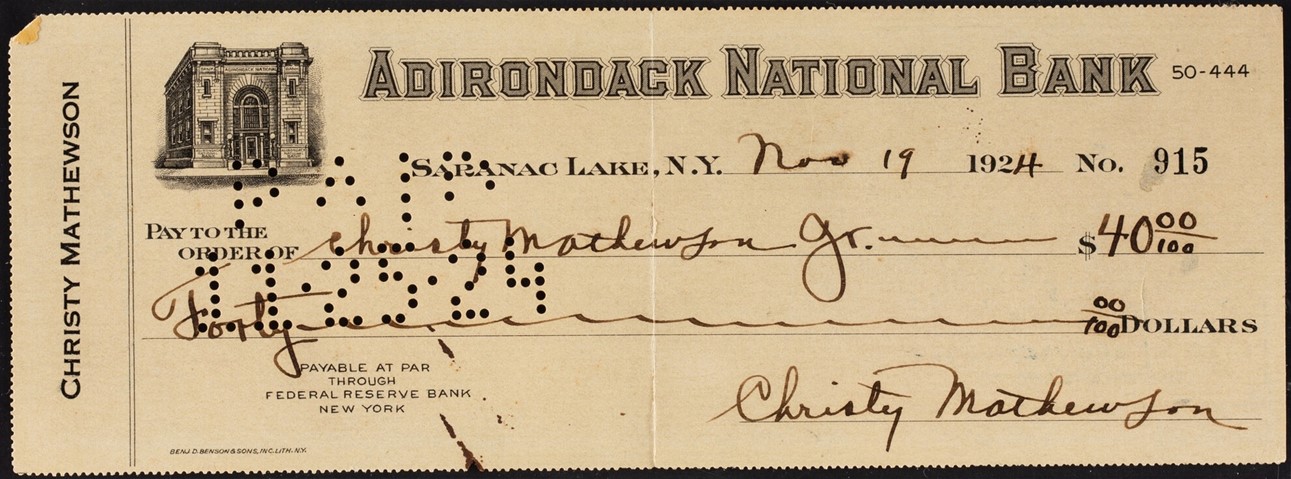 ADIRONDACK NATIONAL BANK 50-444
SARANAC LAKE, N.Y. Nov 19 1924 No. 915
PAY TO THE
ORDER OF Christy Mathewson Jr. $40 00/100
Forty 00/100 DOLLARS
PAYABLE AT PAR
THROUGH
FEDERAL RESERVE BANK
NEW YORK
Christy Mathewson
BENJ. D. BENSON & SONS, INC. LITH. N.Y.
CHRISTY MATHEWSON
PAID
11.25.24